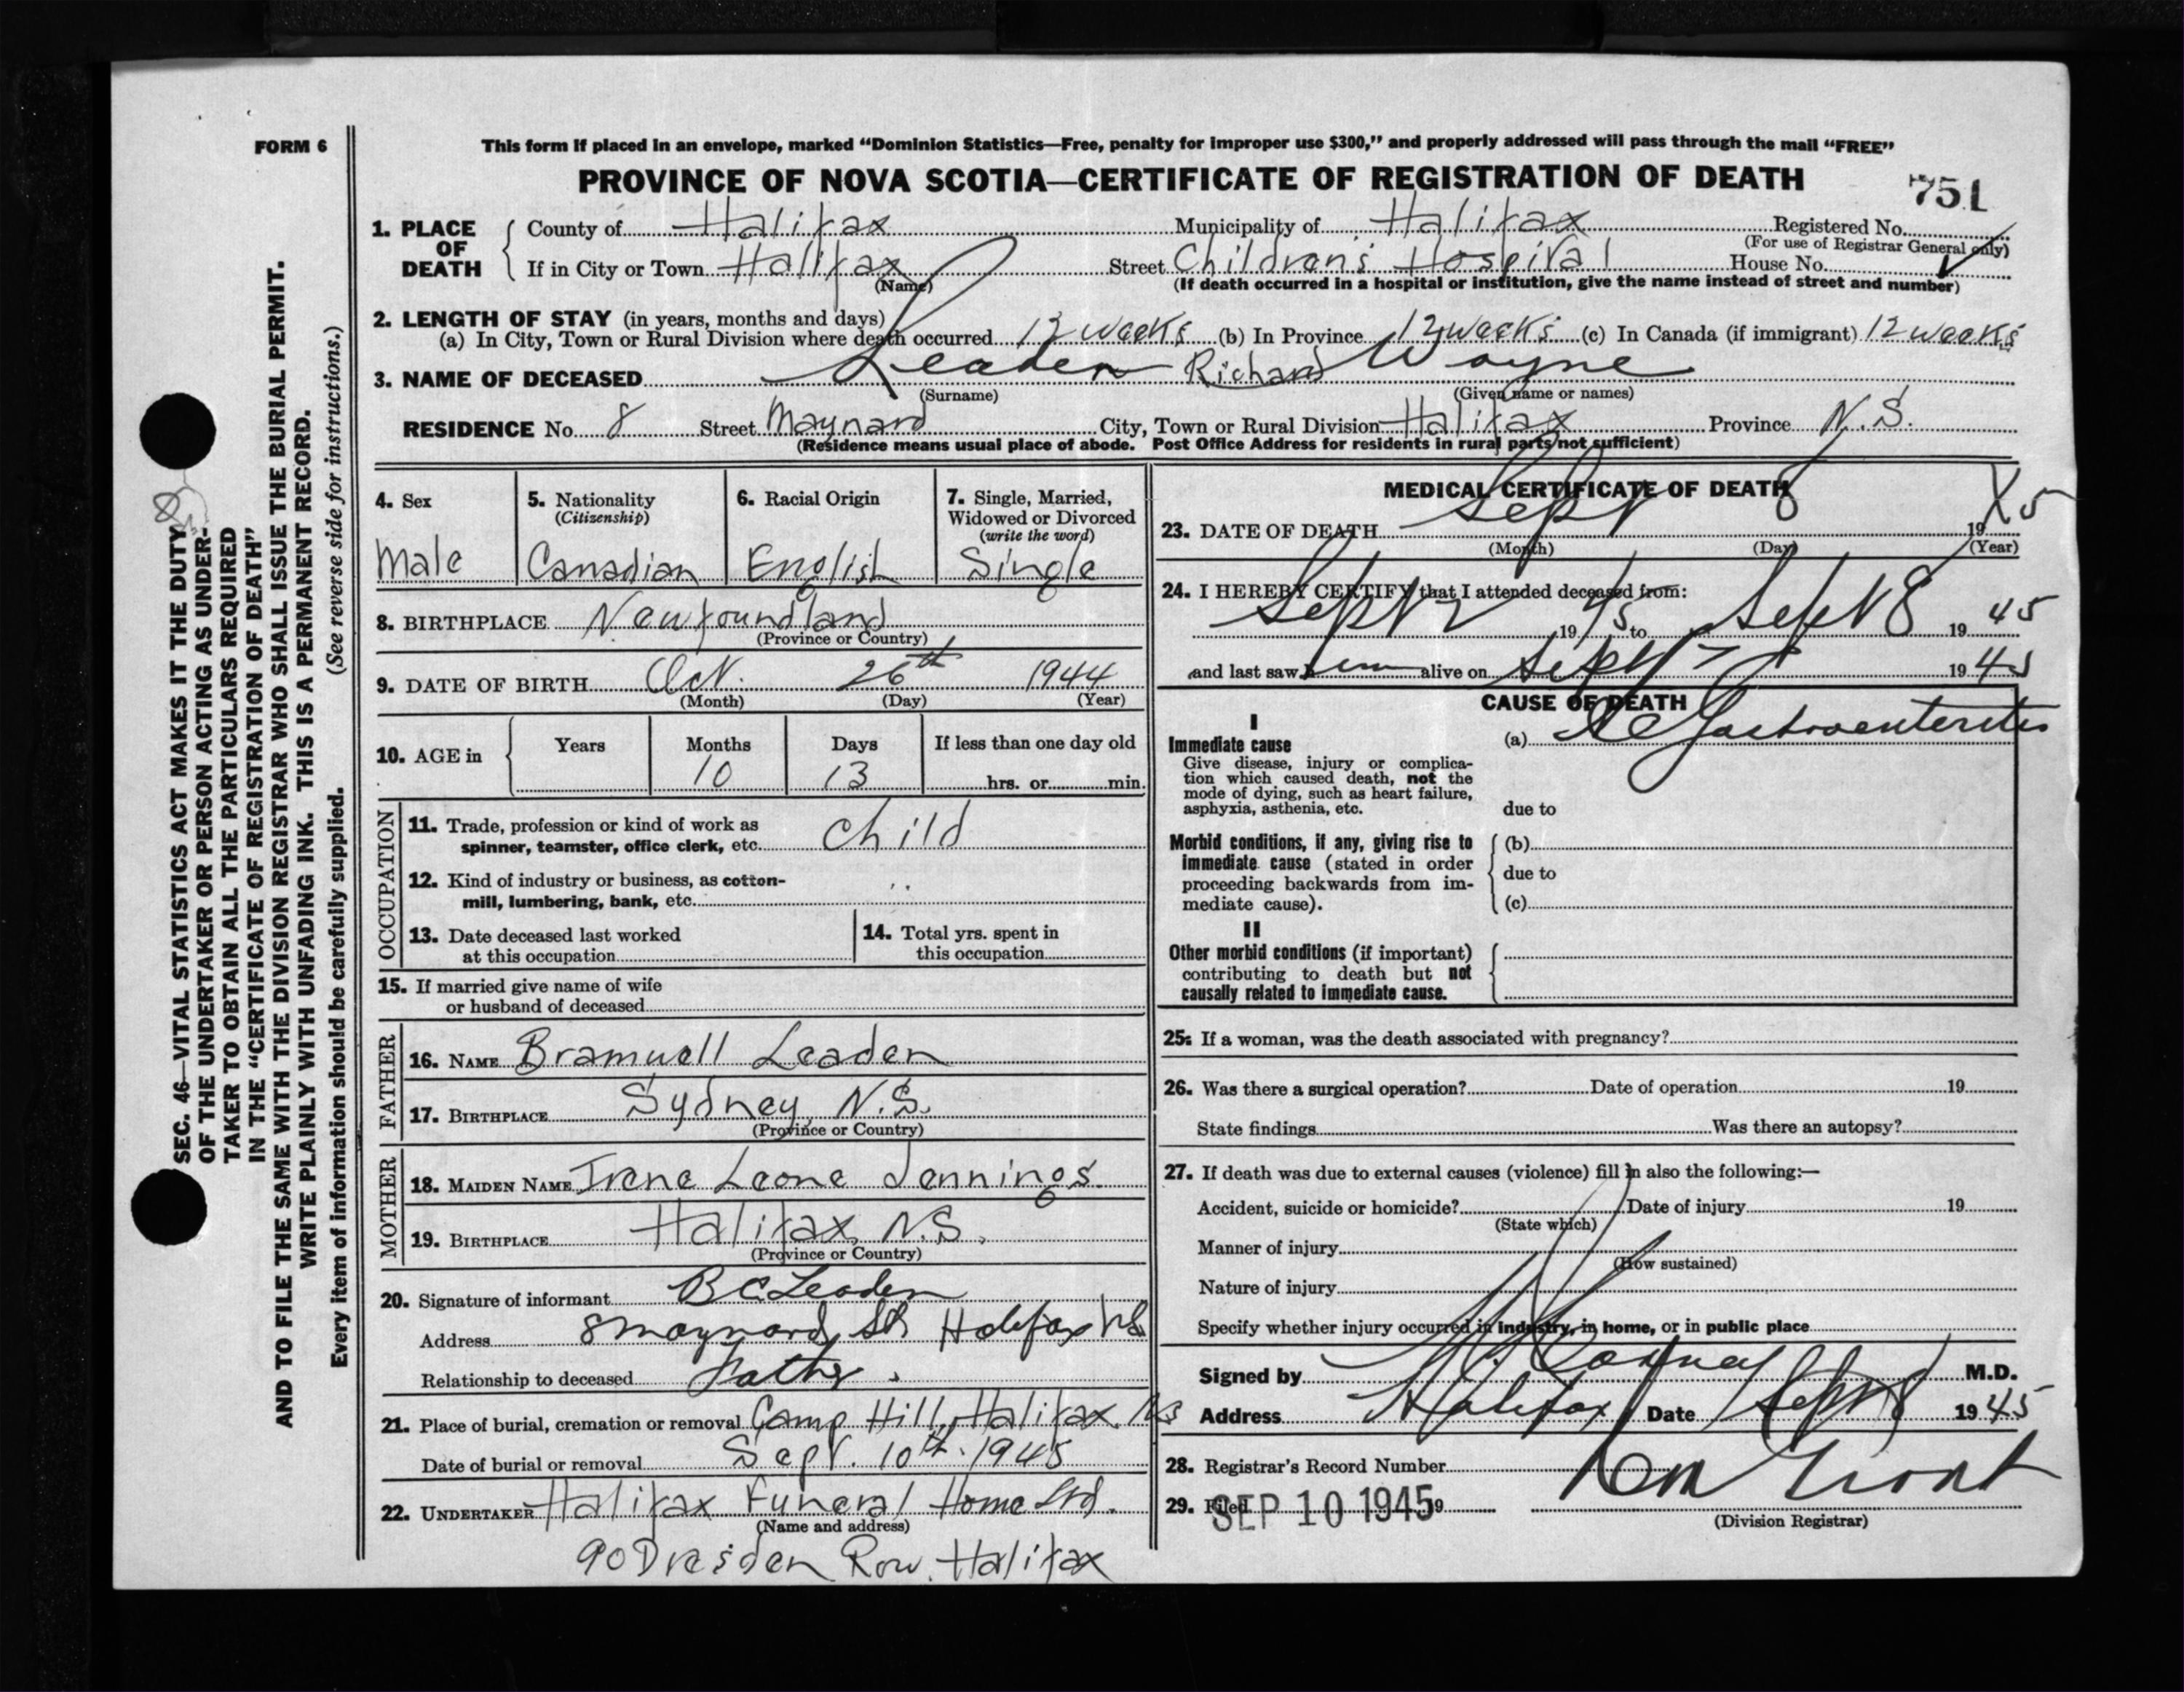 FORM 6
This form if placed in an envelope, marked "Dominion Statistics—Free, penalty for improper use $300," and properly addressed will pass through the mail "FREE"
PROVINCE OF NOVA SCOTIA—CERTIFICATE OF REGISTRATION OF DEATH
751
1. PLACE OF DEATH County of Halifax Municipality of Halifax Registered No.
(For use of Registrar General only)
If in City or Town Halifax Street Children's Hospital House No.
(Name) (If death occurred in a hospital or institution, give the name instead of street and number)
2. LENGTH OF STAY (in years, months and days)
(a) In City, Town or Rural Division where death occurred 12 weeks (b) In Province 12 weeks (c) In Canada (if immigrant) 12 weeks
3. NAME OF DECEASED Leaden Richard Wayne
(Surname) (Given name or names)
RESIDENCE No. 8 Street Maynard City, Town or Rural Division Halifax Province N.S.
(Residence means usual place of abode. Post Office Address for residents in rural parts not sufficient)
4. Sex
Male
5. Nationality
(Citizenship)
Canadian
6. Racial Origin
English
7. Single, Married,
Widowed or Divorced
(write the word)
Single
8. BIRTHPLACE Newfoundland
(Province or Country)
9. DATE OF BIRTH Oct. 26th 1944
(Month) (Day) (Year)
10. AGE in Years Months Days If less than one day old
10 13 hrs. or min.
OCCUPATION
11. Trade, profession or kind of work as
spinner, teamster, office clerk, etc. Child
12. Kind of industry or business, as cotton-
mill, lumbering, bank, etc. ..
13. Date deceased last worked
at this occupation
14. Total yrs. spent in
this occupation
15. If married give name of wife
or husband of deceased
FATHER
16. NAME Bramwell Leaden
17. BIRTHPLACE Sydney, N.S.
(Province or Country)
MOTHER
18. MAIDEN NAME Irene Leone Jennings.
19. BIRTHPLACE Halifax, N.S.
(Province or Country)
20. Signature of informant B C Leaden
Address 8 Maynard St Halifax NS
Relationship to deceased Father.
21. Place of burial, cremation or removal Camp Hill, Halifax. NS
Date of burial or removal Sept. 10th. 1945
22. UNDERTAKER Halifax Funeral Home Ltd.
(Name and address)
90 Dresden Row. Halifax
MEDICAL CERTIFICATE OF DEATH
23. DATE OF DEATH Sept 8 1945
(Month) (Day) (Year)
24. I HEREBY CERTIFY that I attended deceased from:
Sept 2 1945 to Sept 8 1945
and last saw him alive on Sept 7 1945
CAUSE OF DEATH
I
Immediate cause
Give disease, injury or complica-
tion which caused death, not the
mode of dying, such as heart failure,
asphyxia, asthenia, etc.
(a) Gastroenteritis
due to
Morbid conditions, if any, giving rise to
immediate cause (stated in order
proceeding backwards from im-
mediate cause).
(b)
due to
(c)
II
Other morbid conditions (if important)
contributing to death but not
causally related to immediate cause.
25. If a woman, was the death associated with pregnancy?
26. Was there a surgical operation? Date of operation 19
State findings Was there an autopsy?
27. If death was due to external causes (violence) fill in also the following:—
Accident, suicide or homicide? Date of injury 19
(State which)
Manner of injury
(How sustained)
Nature of injury
Specify whether injury occurred in industry, in home, or in public place
Signed by M.D.
Address Halifax Date Sept 8 1945
28. Registrar's Record Number
29. Filed SEP 10 1945 19
(Division Registrar)
SEC. 46—VITAL STATISTICS ACT MAKES IT THE DUTY
OF THE UNDERTAKER OR PERSON ACTING AS UNDER-
TAKER TO OBTAIN ALL THE PARTICULARS REQUIRED
IN THE "CERTIFICATE OF REGISTRATION OF DEATH"
AND TO FILE THE SAME WITH THE DIVISION REGISTRAR WHO SHALL ISSUE THE BURIAL PERMIT.
WRITE PLAINLY WITH UNFADING INK. THIS IS A PERMANENT RECORD.
Every item of information should be carefully supplied. (See reverse side for instructions.)